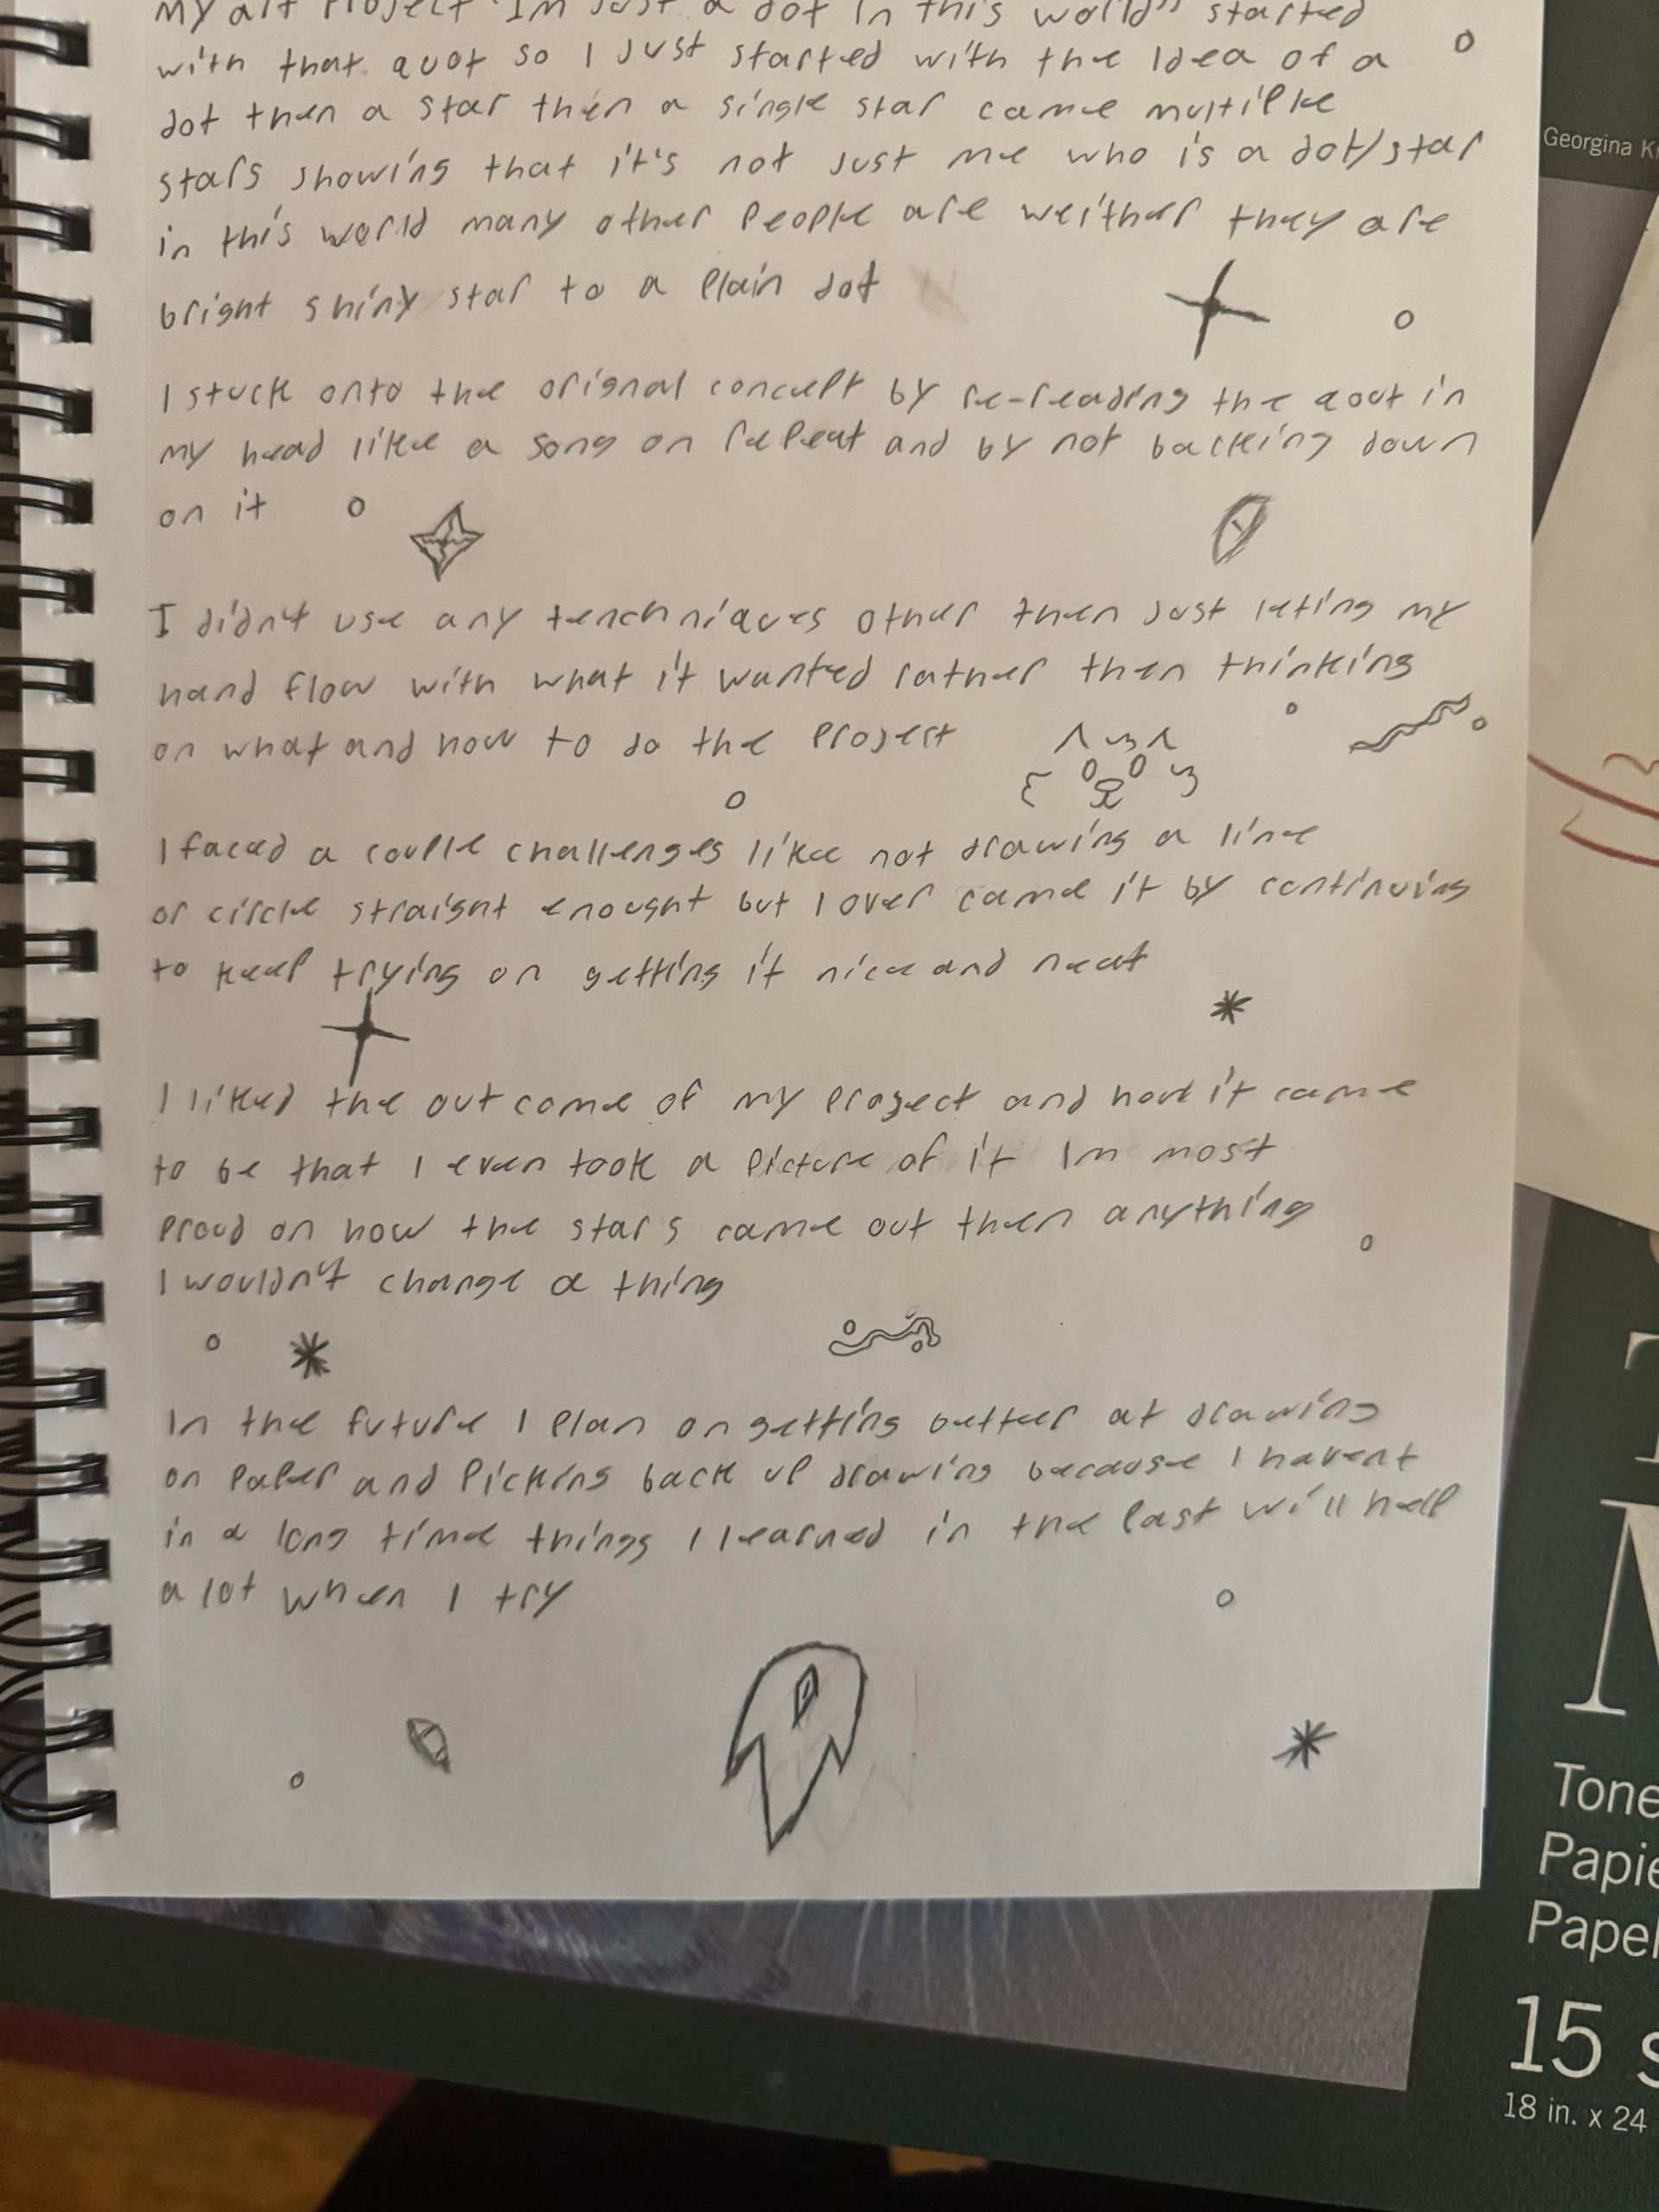 My art Project "Im Just a dot in this world" started
with that quot so I Just started with the Idea of a
dot then a star then a single star came multilke
stars showing that it's not Just me who is a dot/star
in this world many other People are weither they are
bright shiny star to a Plain dot
I stuck onto the orignal concept by re-reading the qout in
my head like a song on repeat and by not backing down
on it
I didn't use any tenchniques other then Just leting my
hand flow with what it wanted rather then thinking
on what and how to do the Project
I faced a couple challenges like not drawing a line
or circle straight enought but I over came it by continuing
to keep trying on getting it nice and neat
I liked the out come of my project and how it came
to be that I even took a Picture of it Im most
Proud on how the stars came out then anything
I wouldn't change a thing
In the future I Plan on getting better at drawing
on Paper and Picking back up drawing because I havent
in a long time things I learned in the Past will help
a lot when I try
Georgina
Tone
Papie
Papel
15 s
18 in. x 24